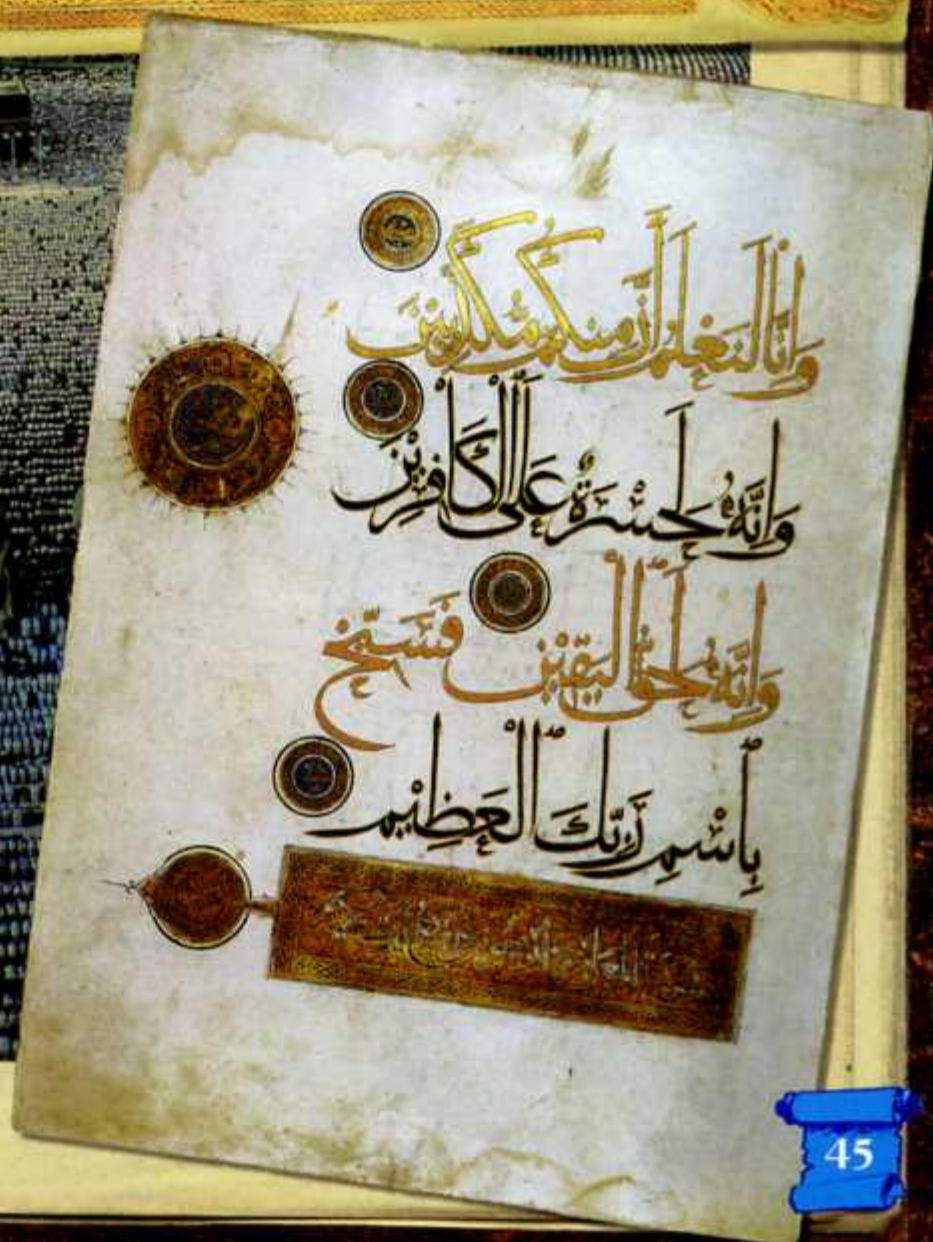 وَإِنَّا لَنَعْلَمُ أَنَّ مِنكُم مُّكَذِّبِينَ
وَإِنَّهُ لَحَسْرَةٌ عَلَى الْكَافِرِينَ
وَإِنَّهُ لَحَقُّ الْيَقِينِ فَسَبِّحْ
بِاسْمِ رَبِّكَ الْعَظِيمِ
سورة المعارج
45